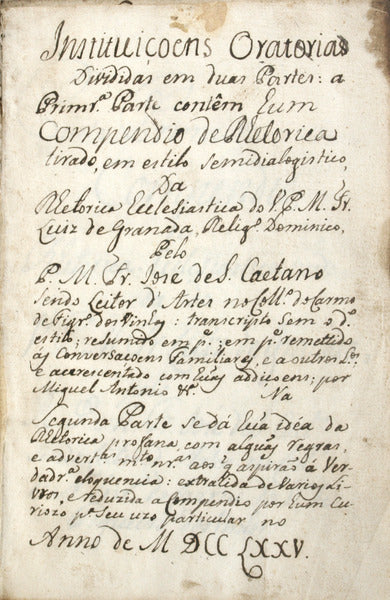 Instituiçoens Oratorias
Divididas em duas Partes: a
Primrª. Parte contêm Eum
Compendio de Rhetorica
tirado, em estilo semidialogistico,
Da
Rhetorica Ecclesiastica do V. P. M. Fr.
Luiz de Granada, Religº. Dominico,
Pelo
P. M. Fr. José de S. Caetano
sendo Leitor d'Artes no Collº. do Carmo
de Figrº. dos Vinhos: transcripto sem o dº.
estilo; resumido em pª.; em pª. remettido
ás Conversacoens Familiares, e a outros
e accrescentado com addicoens; por
Miguel Antonio &ª.
Na
Segunda Parte se dá idéa da
Rhetorica profana com algũas regras,
e advertªs. aos q̃ aspirão a Ver-
dadrª. eloquencia: extrahida de Varios Li-
vros, e reduzida a Compendio por Eum Cu-
riozo pª. seu uzo particular no
Anno de M DCC LXXV.